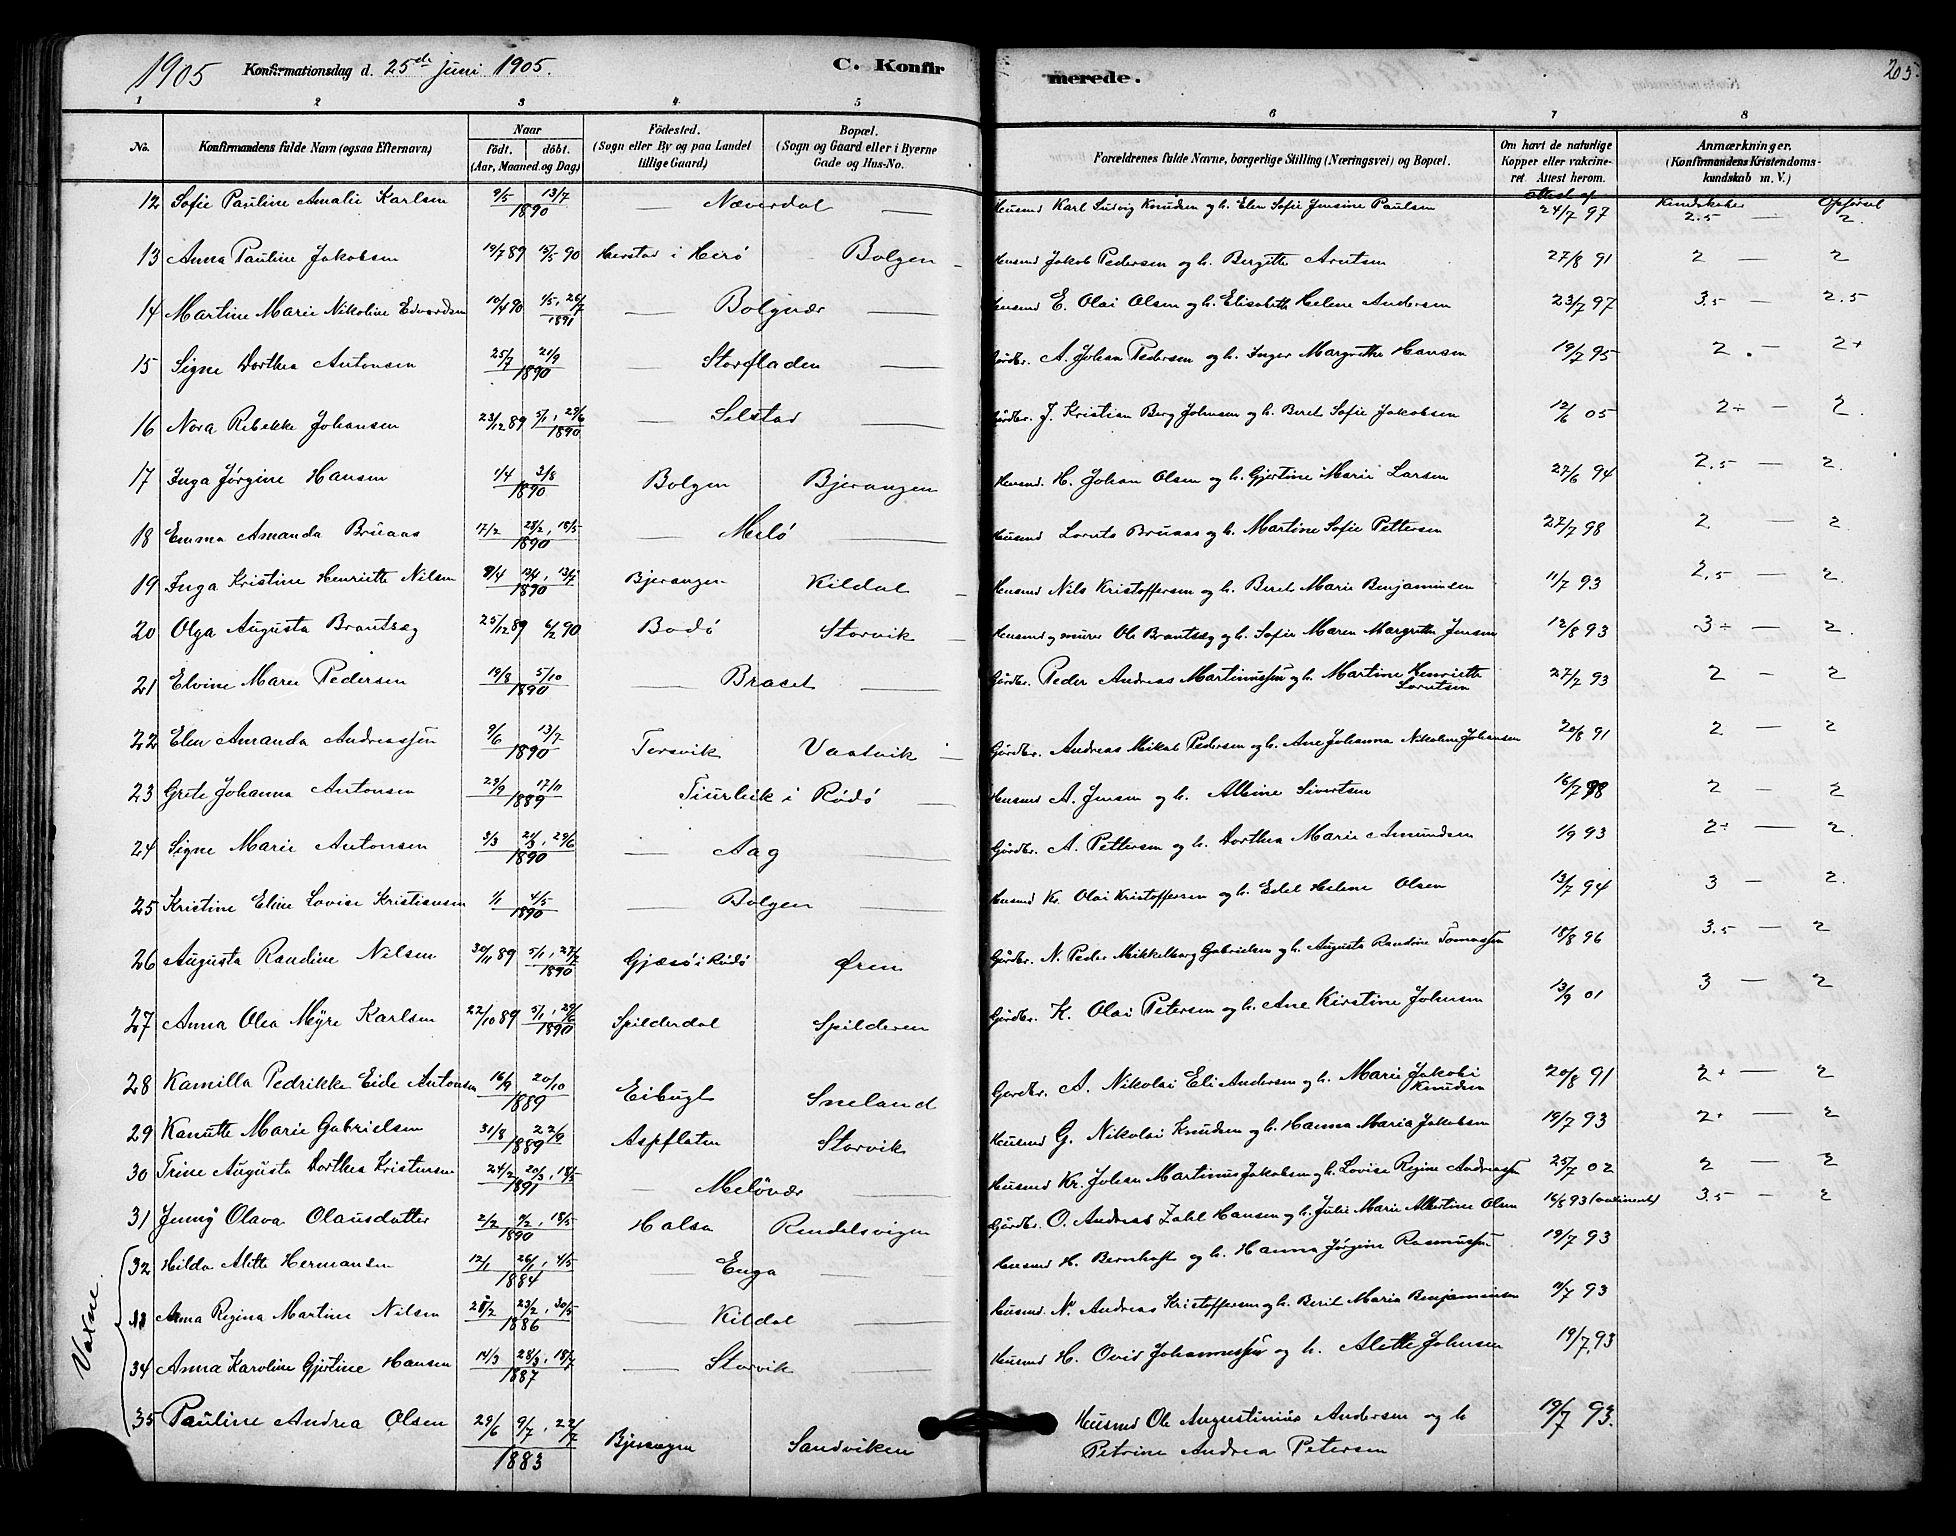 1905 Konfirmationsdag d. 25de juni 1905. C. Konfirmerede. 205.
1 2 3 4. 5. 6 7 8
No. Konfirmandens fulde Navn (ogsaa Efternavn) Naar födt. döbt. (Aar, Maaned og Dag) Födested. (Sogn eller By og paa Landet tillige Gaard) Bopæl. (Sogn og Gaard eller i Byerne Gade og Hus-No. Forældrenes fulde Navne, borgerlige Stilling (Næringsvei) og Bopæl. Om havt de naturlige Kopper eller vakcineret Attest herom. Anmærkninger. (Konfirmandens Kristendomskundskab m. V.)
attest af Kundskaber Opførsel
12 Sofie Pauline Amalie Karlsen 9/5 13/7 1890 — Næverdal — Husmd Karl Ludvig Knudsen og h. Elen Sofie Jensine Paulsen 24/7 97 2.5 — 2.
13 Anna Pauline Jakobsen 19/7 89 15/5 90 Herstad i Herö Bolgen Husmd Jakob Pedersen og h. Bergitte Arntsen 27/8 91 2 — 2
14 Martine Marie Nikoline Edvardsen 10/4 90 1/5, 26/7 1891 — Bolgvær — Husmd E. Olai Olsen og h. Elisabeth Helene Andersen 23/7 97 3.5 — 2.5
15 Signe Dorthea Antonsen 25/7 21/9 1890 — Storfladen — Gårdbr. A. Johan Pedersen og h. Inger Margrethe Hansen 19/7 95 2. — 2+
16 Nora Rebekke Johansen 23/12 89 5/1, 29/6 1890 — Selstad — Gårdbr. J. Kristian Berg Johnsen og h. Beret Sofie Jakobsen 12/6 05 2÷ — 2.
17 Inga Jørgine Hansen 1/4 3/8 1890 Bolgen Bjerangen Husmd. H. Johan Olsen og h. Gjertine Marie Larsen 27/6 94 2.5 — 2.
18 Emma Amanda Bruaas 17/2 28/2, 18/5 1890 — Melö — Husmd Lornts Bruaas og h. Martine Sofie Pettersen 27/7 98 2 — 2.
19 Inga Kristine Henriette Nilsen 9/4 12/4, 13/7 1890 Bjerangen Kildal Husmd Nils Kristoffersen og h. Beret Marie Benjaminsen 11/7 93 2.5 — 2.
20 Olga Augusta Brantsæg 25/12 89 6/2 90 Bodö Storvik Husmd og murer Ole Brantsæg og h. Sofie Maren Margrethe Jensen 12/8 93 3÷ — 2.
21 Elvine Marie Pedersen 19/8 5/10 1890 — Braset — Gårdbr. Peder Andreas Martinussen og h. Martine Henriette Lorntsen 27/7 93 2 — 2
22 Elen Amanda Andreassen 9/6 13/7 1890 Torsvik Vaatvik Gårdbr. Andreas Mikal Pedersen og h. Ane Johanna Nikoline Johansen 20/8 91 2 — 2
23 Grete Johanna Antonsen 29/9 17/11 1889 Tiurleik i Rödö — Husmd A. Jensen og h. Albine Sivertsen 16/7 98 2 — 2
24 Signe Marie Antonsen 3/3 21/3, 29/6 1890 — Aag — Gårdbr. A. Pettersen og h. Dorthea Marie Amundsen 1/9 93 2÷ — 2.
25 Kristine Eline Lovise Kristiansen 1/1 4/5 1890 — Bolgen — Husmd Kr. Olai Kristoffersen og h. Edel Helene Olsen 13/7 94 3 — 2.
26 Augusta Randine Nilsen 30/11 89 5/1, 27/7 1890 Gjæsö i Rödö Øren Gårdbr. N. Peder Mikkelborg Gabrielsen og h. Augusta Randine Tomassen 18/8 96 3.5 — 2
27 Anna Olea Myre Karlsen 22/10 89 5/1, 29/6 1890 Spilderdal Spilderen Gårdbr. K. Olai Petersen og h. Ane Kirstine Johnsen 13/9 01 3 — 2
28 Kamilla Pedrikke Eide Antonsen 16/9 20/10 1889 Eibugt Sneland Gardbr. A. Nikolai Eli Andersen og h. Marie Jakobi Knudsen 20/8 91 2+ — 2
29 Kanutte Marie Gabrielsen 31/8 22/9 1889 Aspflaten Storvik Husmd G. Nikolai Knudsen og h. Hanna Maria Jakobsen 19/7 93 2+ — 2
30 Trine Augusta Dorthea Kristensen 24/2 20/3, 18/5 1891 — Melövær — Husmd Kr. Johan Martinius Jakobsen og h. Lovise Regine Andreassen 25/7 02 2 — 2
31 Jenny Olava Olausdatter 2/2 9/2, 18/5 1890 Halsa Rendalsvigen Gårdbr. O. Andreas Zahl Hansen og h. Julie Marie Albertine Olsen 16/8 93 3.5 — 2
Voxne.
32 Hilda Alette Hermansen 12/1 26/1, 4/5 1884 — Enga — Husmd H. Bernhoft og h. Hanna Jørgine Rasmussen 19/7 93
33 Anna Regina Martine Nilsen 28/2 23/2, 30/5 1886 — Kildal — Husmd. N. Andreas Kristoffersen og h. Berit Maria Benjaminsen 11/7 93
34 Anna Karoline Gjertine Hansen 14/3 28/3, 18/7 1887 — Storvik — Husmd H. Ovid Johannessen og h. Alette Johnsen 19/7 93
35 Pauline Andrea Olsen 29/6 9/7, 22/7 1883 Bjerangen Sandviken Husmd Ole Augustinius Andersen og h Petrine Andrea Petersen 19/7 93.